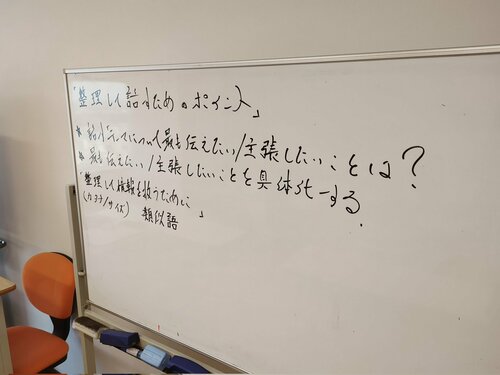 「整理して話すためのポイント」
* 話すことについて最も伝えたい/主張したいことは?
* 最も伝えたい/主張したいことを具体化する。
「整理して情報を扱うために」
(カタチ/サイズ) 類似語